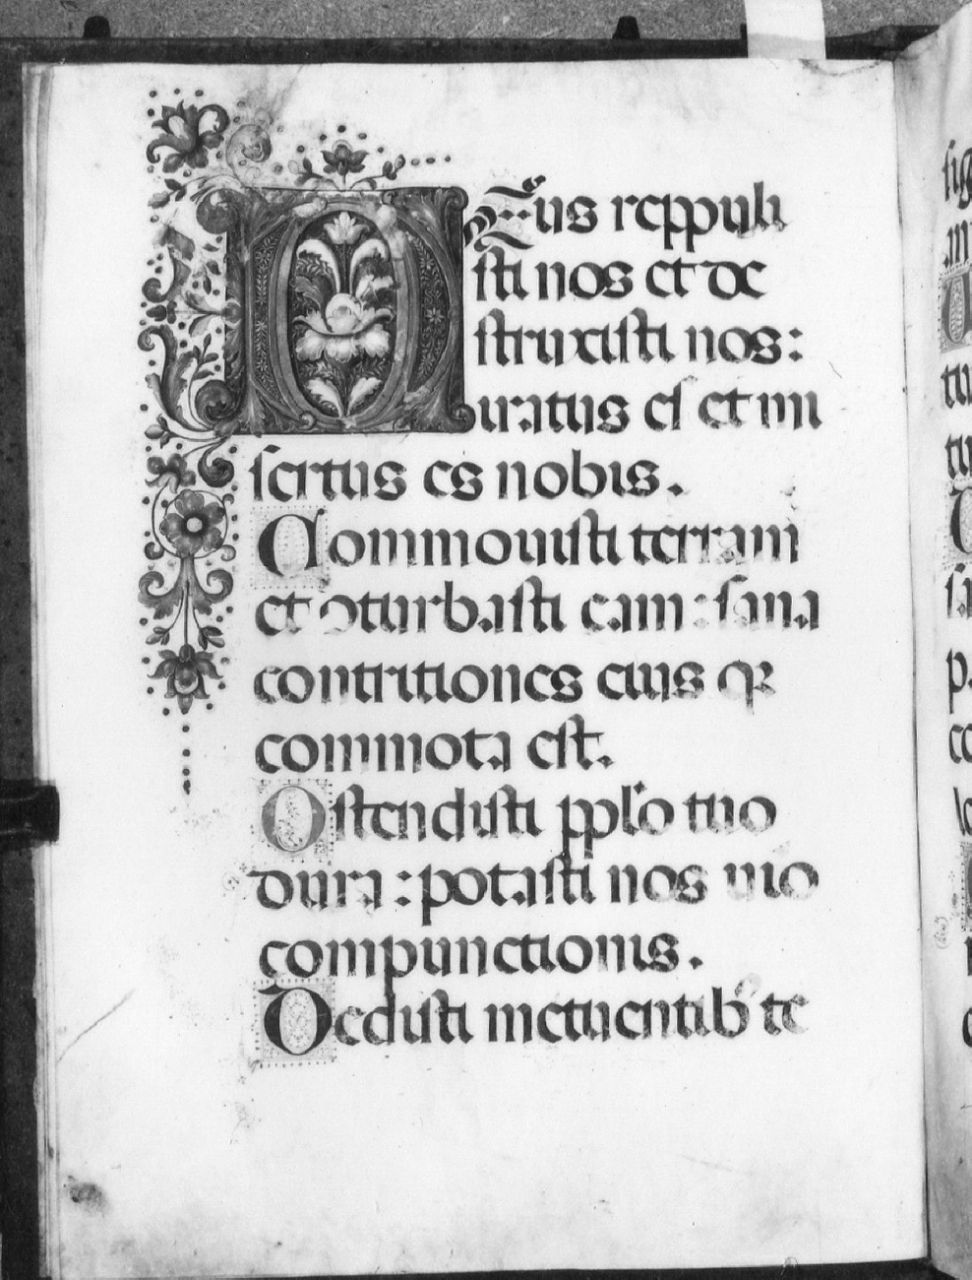 DEus reppuli
sti nos et de
struxisti nos:
iratus es et mi
sertus es nobis.
Commouisti terram
et ꝯturbasti eam: sana
contritiones eius qꝛ
commota est.
Ostendisti pplo tuo
dura: potasti nos uio
compunctionis.
Dedisti metuentib' te